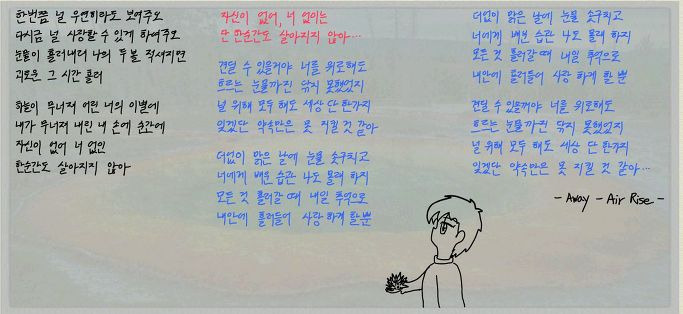 한번쯤 널 우연이라도 보여주오
다시금 널 사랑할 수 있게 하여주오
눈물이 흘러내려 나의 두볼 적셔지면
괴로운 그 시간 흘러
하늘이 무너져 어린 너의 이별에
내가 무너져 내린 내 손에 순간에
자신이 없어 너 없인
한순간도 살아지지 않아
자신이 없어, 너 없이는
단 한순간도 살아지지 않아…
견딜 수 있을거야 너를 위로해도
흐르는 눈물까진 닦지 못했었지
널 위해 모두 해도 세상 단 한가지
잊겠단 약속만은 못 지킬 것 같아
더없이 맑은 날에 눈물 솟구치고
너에게 배운 습관 나도 몰래 하지
모든 것 흘러갈 때 내일 추억으로
내안에 흘러들어 사랑 하게 할 뿐
더없이 맑은 날에 눈물 솟구치고
너에게 배운 습관 나도 몰래 하지
모든 것 흘러갈 때 내일 추억으로
내안에 흘러들어 사랑 하게 할 뿐
견딜 수 있을꺼야 너를 위로해도
흐르는 눈물까진 닦지 못했었지
널 위해 모두 해도 세상 단 한가지
잊겠단 약속만은 못 지킬 것 같아…
- Away - Air Rise -